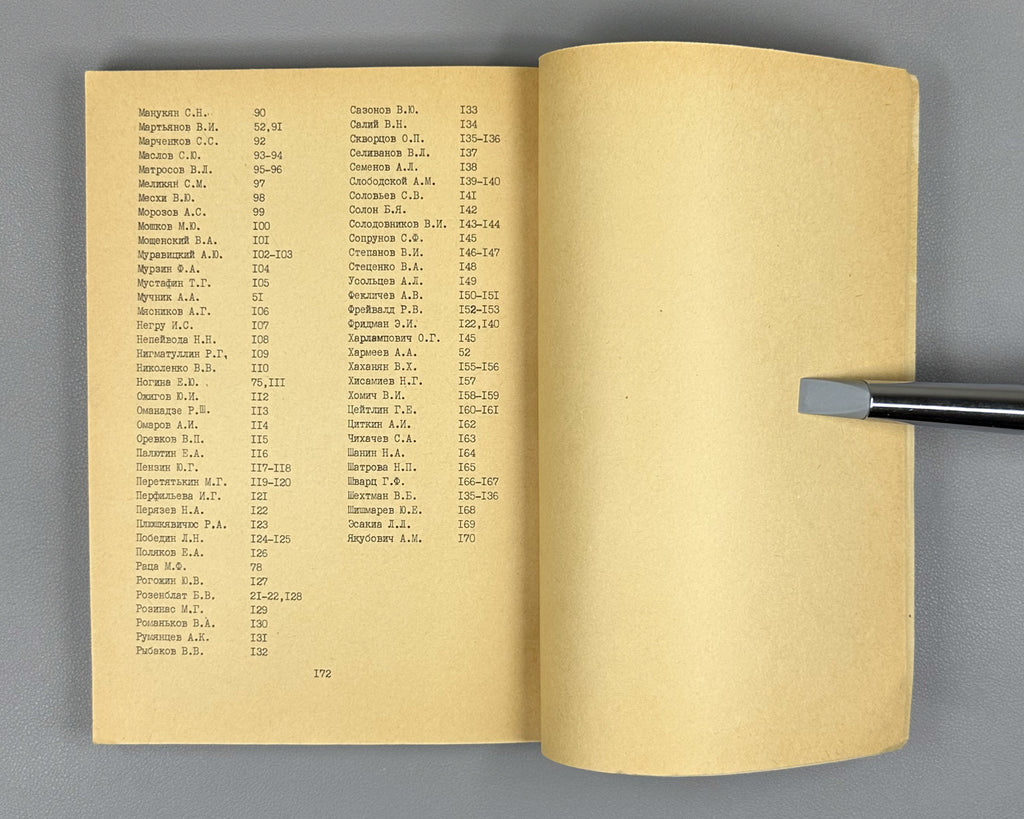 Манукян С.Н. 90
Мартьянов В.И. 52,9I
Марченков С.С. 92
Маслов С.Ю. 93-94
Матросов В.Л. 95-96
Меликян С.М. 97
Месхи В.Ю. 98
Морозов А.С. 99
Мошков М.Ю. I00
Мощенский В.А. I0I
Муравицкий А.Ю. I02-I03
Мурзин Ф.А. I04
Мустафин Т.Г. I05
Мучник А.А. 5I
Мясников А.Г. I06
Негру И.С. I07
Непейвода Н.Н. I08
Нигматуллин Р.Г. I09
Николенко В.В. II0
Ногина Е.Ю. 75,III
Ожигов Ю.И. II2
Оманадзе Р.Ш. II3
Омаров А.И. II4
Оревков В.П. II5
Палютин Е.А. II6
Пензин Ю.Г. II7-II8
Перетятькин М.Г. II9-I20
Перфильева И.Г. I2I
Перязев Н.А. I22
Плюшкявичюс Р.А. I23
Победин Л.Н. I24-I25
Поляков Е.А. I26
Раца М.Ф. 78
Рогожин Ю.В. I27
Розенблат Б.В. 2I-22,I28
Розинас М.Г. I29
Романьков В.А. I30
Румянцев А.К. I3I
Рыбаков В.В. I32
Сазонов В.Ю. I33
Салий В.Н. I34
Скворцов О.П. I35-I36
Селиванов В.Л. I37
Семенов А.Л. I38
Слободской А.М. I39-I40
Соловьев С.В. I4I
Солон Б.Я. I42
Солодовников В.И. I43-I44
Сопрунов С.Ф. I45
Степанов В.И. I46-I47
Стеценко В.А. I48
Усольцев А.Л. I49
Фекличев А.В. I50-I5I
Фрейвалд Р.В. I52-I53
Фридман Э.И. I22,I40
Харлампович О.Г. I45
Хармеев А.А. 52
Хаханян В.Х. I55-I56
Хисамиев Н.Г. I57
Хомич В.И. I58-I59
Цейтлин Г.Е. I60-I6I
Циткин А.И. I62
Чихачев С.А. I63
Шанин Н.А. I64
Шатрова Н.П. I65
Шварц Г.Ф. I66-I67
Шехтман В.Б. I35-I36
Шишмарев Ю.Е. I68
Эсакиа Л.Л. I69
Якубович А.М. I70
I72